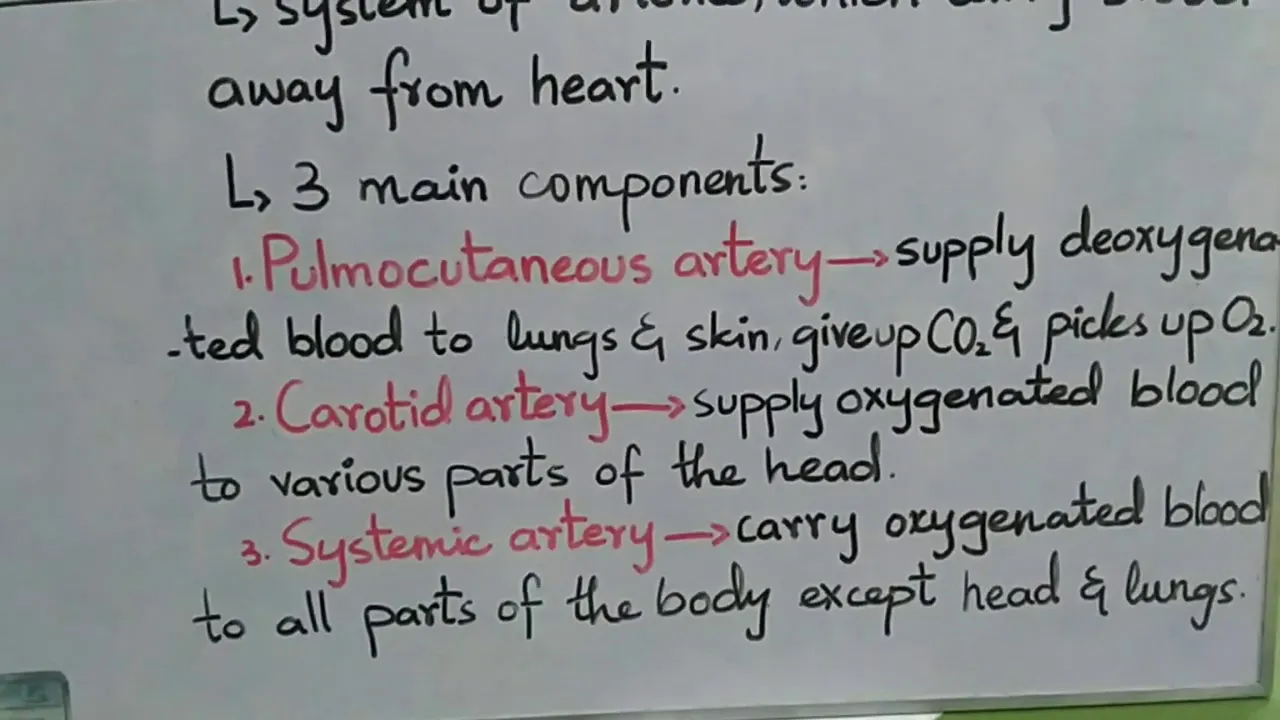 ↳ system of
away from heart.
↳ 3 main components:
1. Pulmocutaneous artery → supply deoxygena
-ted blood to lungs & skin, give up CO₂ & picks up O₂.
2. Carotid artery → supply oxygenated blood
to various parts of the head.
3. Systemic artery → carry oxygenated blood
to all parts of the body except head & lungs.